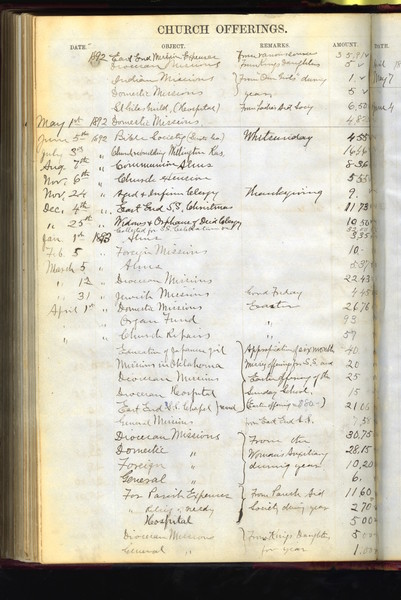 CHURCH OFFERINGS.
DATE. OBJECT. REMARKS. AMOUNT. DATE.
1892 East End Mission Expenses From various sources
Diocesan Missions From Kings Daughters 5
Indian Missions From "Own Guild" during 1 May 7
Domestic Missions year 5
St Hilda's Guild (Hospital) From Ladies Aid Socy 6.50
May 1st 1892 Domestic Missions
June 5th 1892 Bible Society Whitsunday 4.55
July 3rd Church building Wellington Kas.
Aug. 7th Communion Alms 8.36
Nov. 6th Church Extension 5.55
Nov. 24 Aged & Infirm Clergy Thanksgiving 9.
Dec. 4th East End S.S. Christmas 11.73
" 25th Widows & Orphans of Dec'd Clergy 10.50
Collected for S.S. Celebration
Jan. 1st 1893 Alms 3.35
Feb. 5 Foreign Missions 10.-
March 5 Alms
" 12 Diocesan Missions 22.43
" 31 Jewish Missions Good Friday 4.45
April 1st Domestic Missions Easter 26.76
" Organ Fund " 93
" Church Repairs " 59
Education of Japanese girl Appropriation (six months 40.
Missions in Oklahoma Mercy offering for S.S. and 20
Diocesan Missions Easter Offering of the 25
Diocesan Hospital Sunday School. 15
East End S.S. Chapel fund (Easter offering 21.06
General Missions from East End S.S.
Diocesan Missions From the 30.75
Domestic " Woman's Auxiliary 28.15
Foreign " during year 10.20
General " 6.
For Parish Expenses From Parish Aid 11.60
" Relief of needy Society during year 270
Hospital 5.00
Diocesan Missions From Kings Daughters 5.00
General " for year 1.00